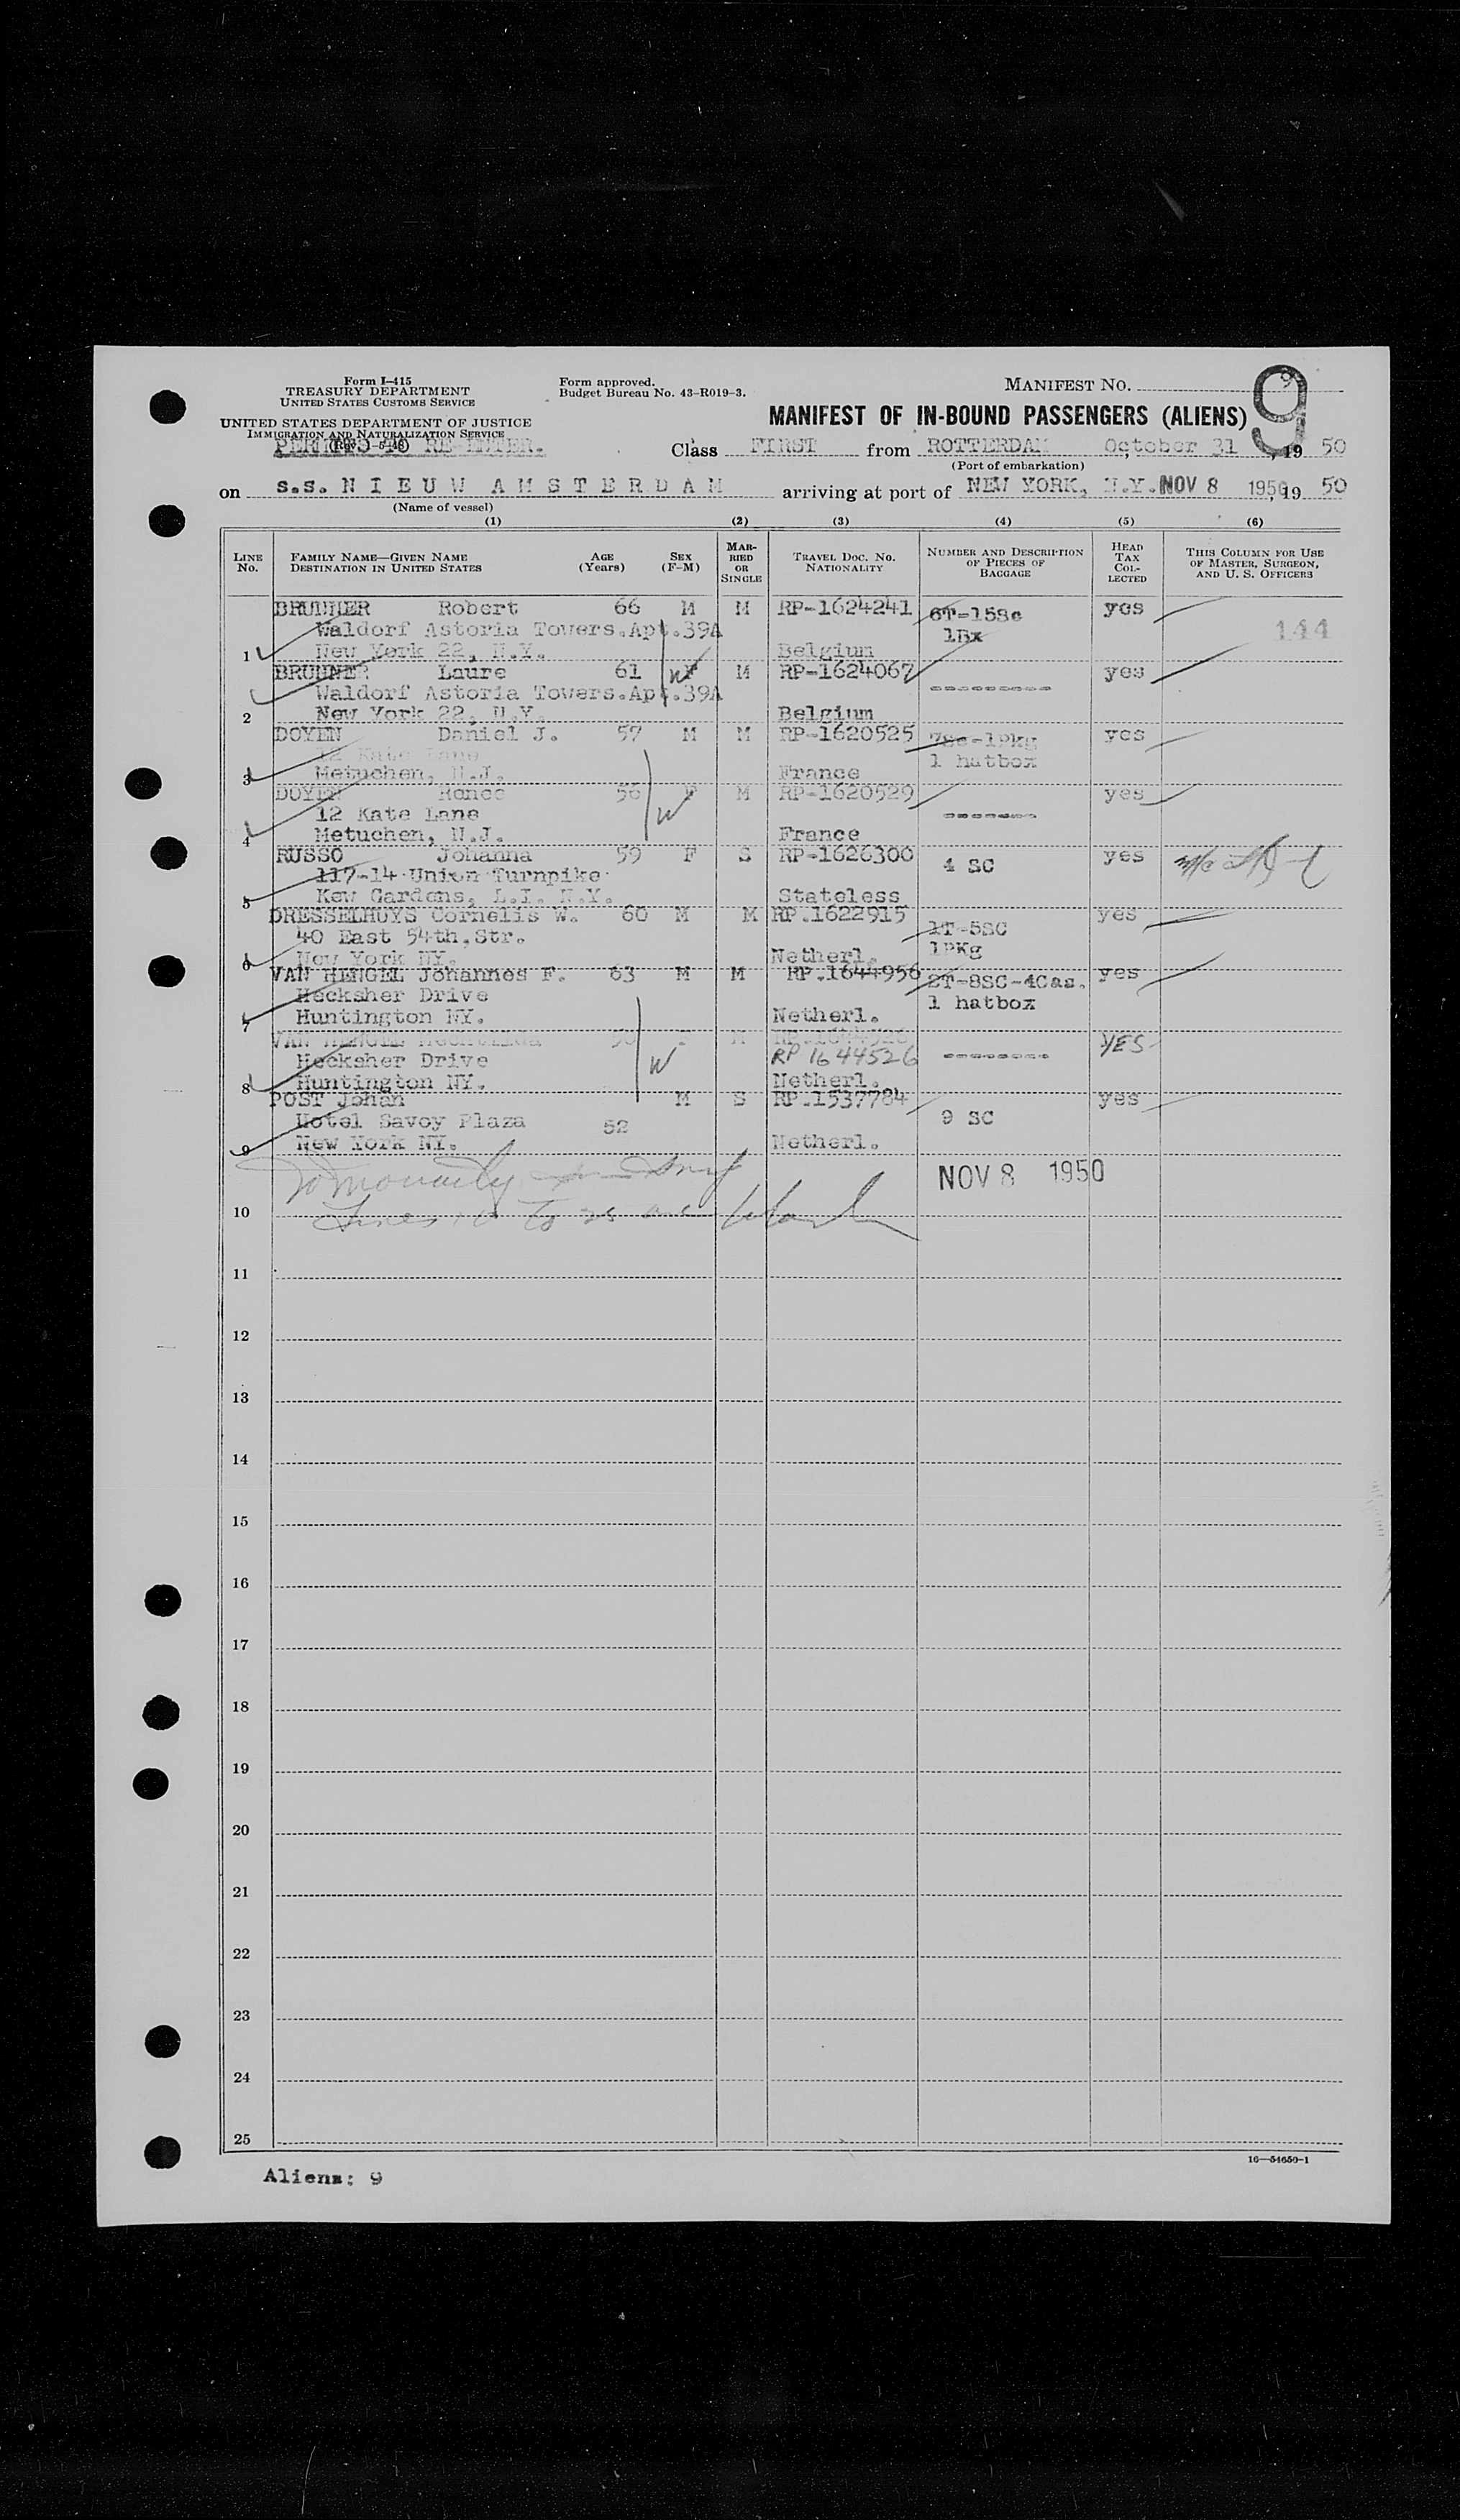 Form I-415
TREASURY DEPARTMENT
UNITED STATES CUSTOMS SERVICE
UNITED STATES DEPARTMENT OF JUSTICE
IMMIGRATION AND NATURALIZATION SERVICE
Form approved.
Budget Bureau No. 43-R019-3.
MANIFEST NO.
9
9
MANIFEST OF IN-BOUND PASSENGERS (ALIENS)
PERMITS TO RE-ENTER.
Class FIRST from ROTTERDAM October 31, 19 50
(Port of embarkation)
on s.s. N I E U W A M S T E R D A M arriving at port of NEW YORK, N.Y. NOV 8 1950, 19 50
(Name of vessel)
(1) (2) (3) (4) (5) (6)
LINE No. FAMILY NAME—GIVEN NAME DESTINATION IN UNITED STATES AGE (Years) SEX (F-M) MARRIED OR SINGLE TRAVEL DOC. NO. NATIONALITY NUMBER AND DESCRIPTION OF PIECES OF BAGGAGE HEAD TAX COLLECTED THIS COLUMN FOR USE OF MASTER, SURGEON, AND U. S. OFFICERS
BRUNNER Robert 66 M M RP-1624241 6T-15Sc yes
Waldorf Astoria Towers.Apt.39A 1Bx 144
1 New York 22, N.Y. Belgium
BRUNNER Laure 61 F M RP-1624067 --------- yes
Waldorf Astoria Towers.Apt.39A W
2 New York 22, N.Y. Belgium
DOYEN Daniel J. 57 M M RP-1620525 7Sc-1Pkg yes
12 Kate Lane 1 hatbox
3 Metuchen, N.J. France
DOYEN Renee 56 F M RP-1620529 ------- yes
12 Kate Lane W
4 Metuchen, N.J. France
RUSSO Johanna 59 F S RP-1626300 4 SC yes
117-14 Union Turnpike
5 Kew Gardens, L.I. N.Y. Stateless
DRESSELHUYS Cornelis W. 60 M M RP.1622915 1T-5SC yes
40 East 54th.Str. 1PKg
6 New York NY. Netherl.
VAN HENGEL Johannes F. 63 M M RP.1644956 2T-8SC-4Cas. yes
Hecksher Drive 1 hatbox
7 Huntington NY. Netherl.
VAN HENGEL F M YES
Hecksher Drive W RP 1644526 --------
8 Huntington NY. Netherl.
POST Johan M S RP.1537784 yes
Hotel Savoy Plaza 52 9 SC
9 New York NY. Netherl.
NOV 8 1950
10 Lines 10 To 25 are blank
11
12
13
14
15
16
17
18
19
20
21
22
23
24
25
16—54650-1
Aliens: 9